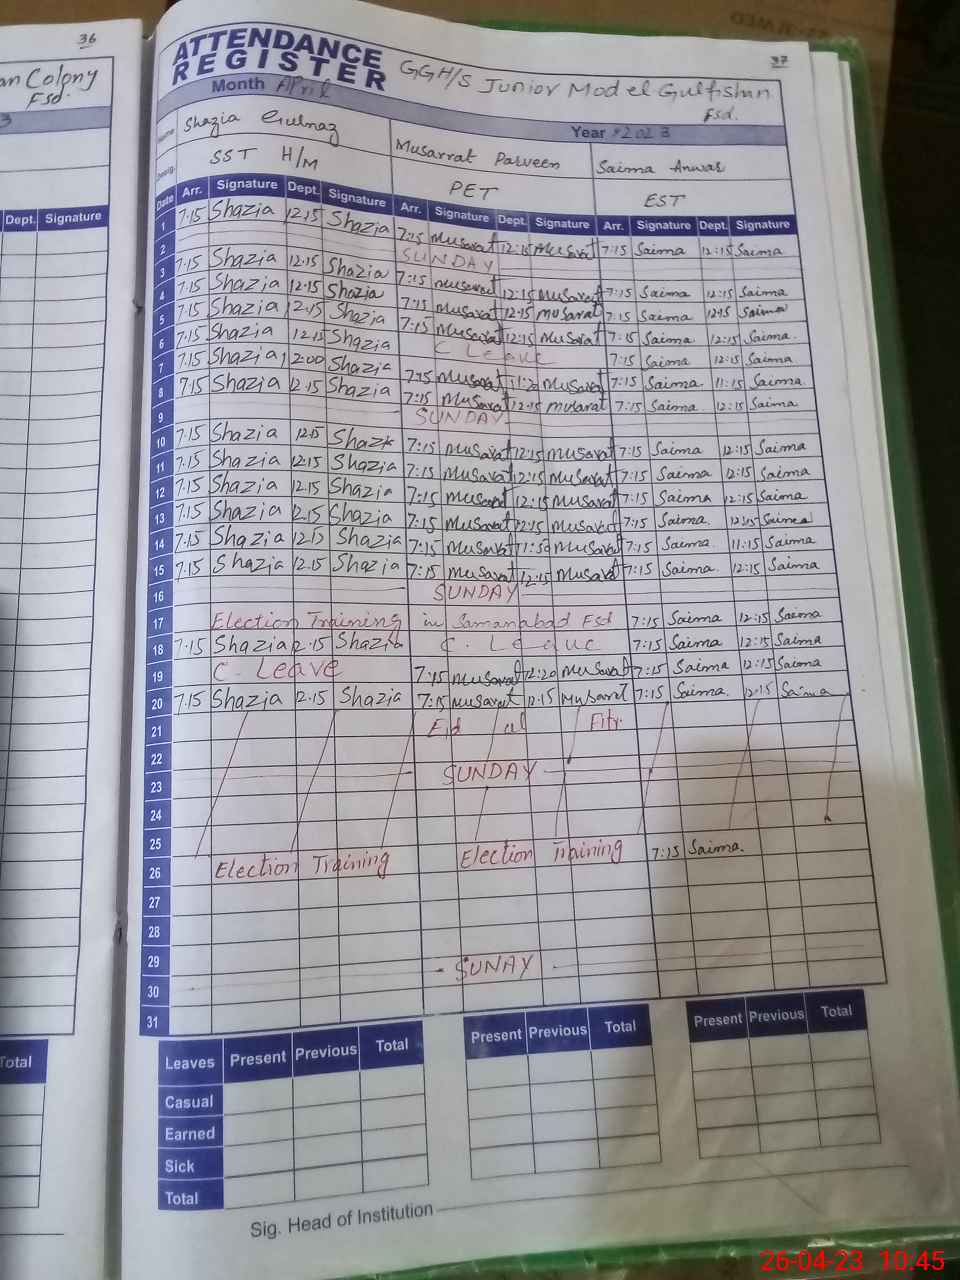 36
an Colony
Fsd.
3
Dept. Signature
Total
37
ATTENDANCE
REGISTER
GGH/S Junior Model Gulfishan
Fsd.
Month April
Year 2023
Name Shazia Gulnaz Musarrat Parveen Saima Anwar
Desig. SST H/M PET EST
Date Arr. Signature Dept. Signature Arr. Signature Dept. Signature Arr. Signature Dept. Signature
1 7.15 Shazia 12.15 Shazia 7:15 Musarat 12:15 Musarat 7:15 Saima 12:15 Saima
2 SUNDAY
3 7.15 Shazia 12.15 Shazia 7:15 Musarat 12:15 Musarat 7:15 Saima 12:15 Saima
4 7.15 Shazia 12.15 Shazia 7:15 Musarat 12:15 Musarat 7:15 Saima 12:15 Saima
5 7.15 Shazia 12.15 Shazia 7:15 Musarat 12:15 Musarat 7:15 Saima 12:15 Saima.
6 7.15 Shazia 12.15 Shazia C Leave 7:15 Saima 12:15 Saima.
7 7.15 Shazia 12:00 Shazia 7:15 Musarat 11:20 Musarat 7:15 Saima. 11:15 Saima.
8 7.15 Shazia 12.15 Shazia 7:15 Musarat 12:15 Musarat 7:15 Saima. 12:15 Saima.
9 SUNDAY
10 7.15 Shazia 12.15 Shazia 7:15 Musarat 12:15 Musarat 7:15 Saima 12:15 Saima.
11 7.15 Shazia 12.15 Shazia 7:15 Musarat 12:15 Musarat 7:15 Saima 12:15 Saima
12 7.15 Shazia 12.15 Shazia 7:15 Musarat 12:15 Musarat 7:15 Saima 12:15 Saima
13 7.15 Shazia 12.15 Shazia 7:15 Musarat 12:15 Musarat 7:15 Saima. 12:15 Saima
14 7.15 Shazia 12.15 Shazia 7:15 Musarat 11:50 Musarat 7:15 Saima. 11:15 Saima
15 7.15 Shazia 12.15 Shazia 7:15 Musarat 12:15 Musarat 7:15 Saima. 12:15 Saima
16 SUNDAY
17 Election Training in Samanabad Fsd 7:15 Saima 12:15 Saima
18 7.15 Shazia 12.15 Shazia C. Leave 7:15 Saima 12:15 Saima
19 C. Leave 7:15 Musarat 12:20 Musarat 7:15 Saima 12:15 Saima
20 7.15 Shazia 12.15 Shazia 7:15 Musarat 12.15 Musarat 7:15 Saima. 12:15 Saima
21 Eid al Fitr.
22
23 SUNDAY
24
25
26 Election Training Election Training 7:15 Saima.
27
28
29
30 SUNAY
31
Leaves Present Previous Total Present Previous Total Present Previous Total
Casual
Earned
Sick
Total
Sig. Head of Institution
26-04-23 10:45